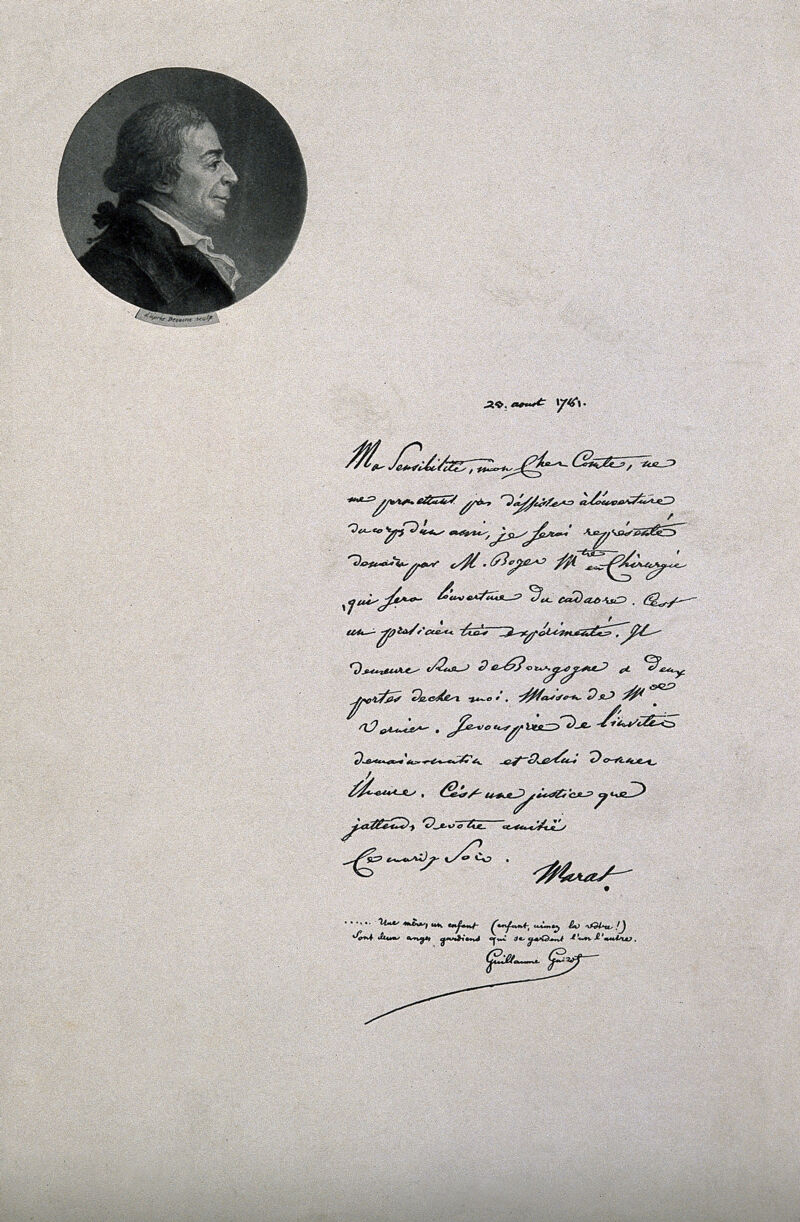 d'après Desseine sculp
28. aoust 1781.
Ma Sensibilité, mon Cher Comte, ne
me promettant pas d'assister à l'ouverture
du corps d'un ami, je serai représenté
demain par M. Boyer Mtre en Chirurgie
qui fera l'ouverture du cadavre. C'est
un praticien très expérimenté. Il
demeure Rue de Bourgogne a deux
portes de chez moi. Maison de Mde
Vernier. Je vous prie de l'inviter
demain matin et de lui donner
l'heure. C'est une justice que
j'attends de votre amitié
Ce mardy Soir.
Marat.
..... Une mère, un enfant (enfant, aimez la vôtre!)
Sont deux anges gardiens qui se gardent l'un l'autre.
Guillaume Guizot